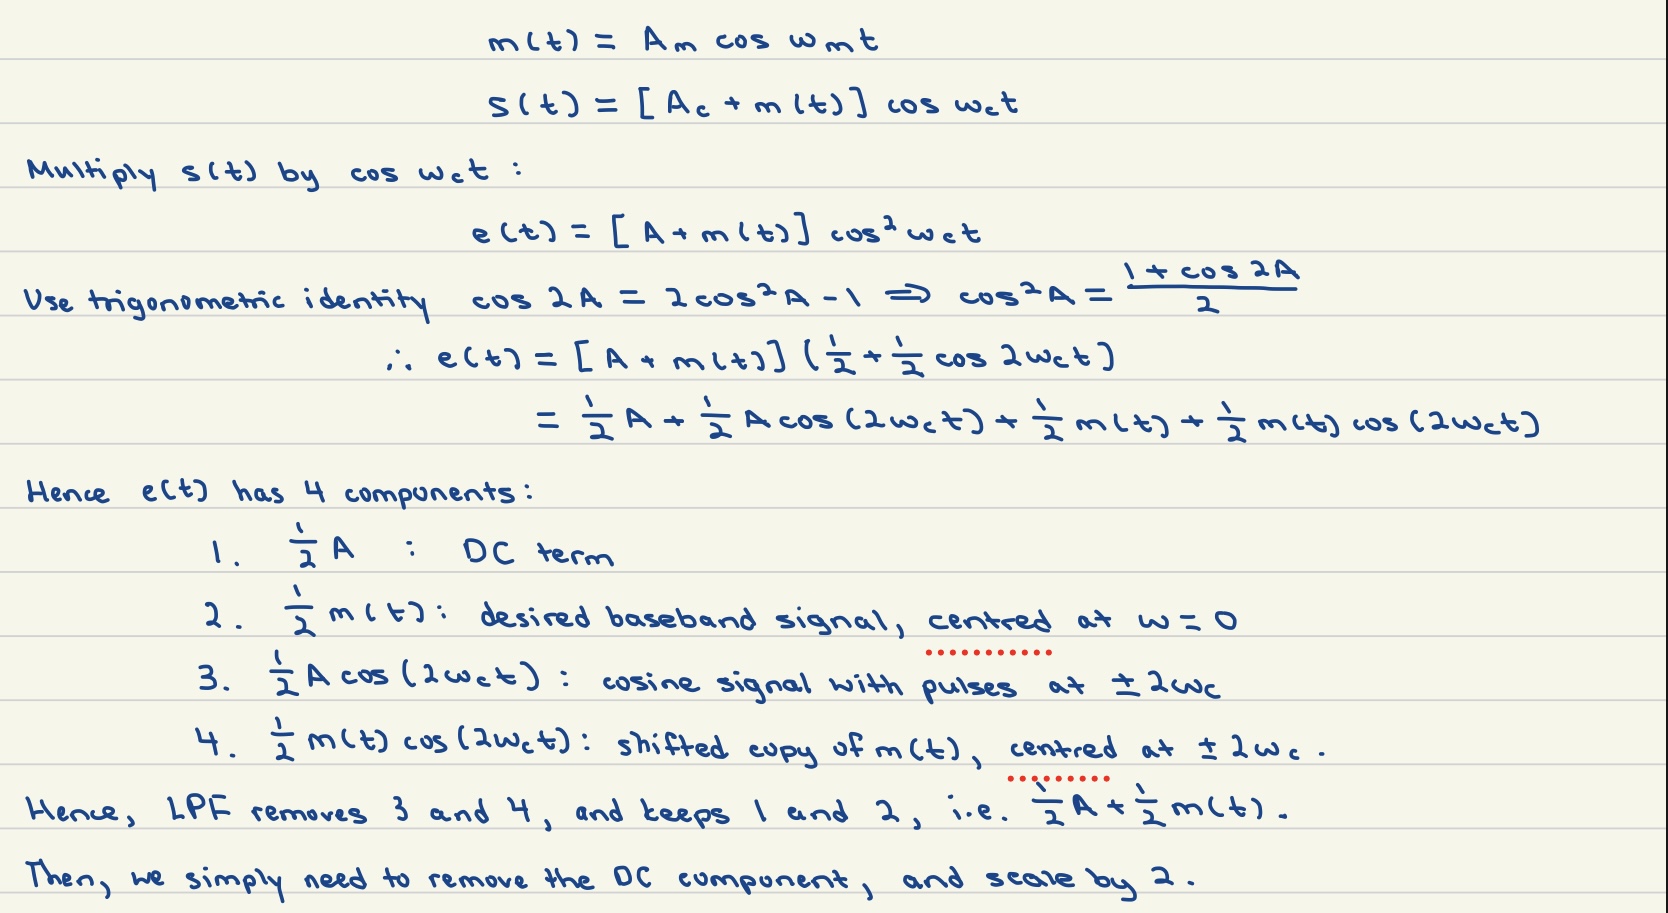 m(t) = Aₘ cos ωₘt
s(t) = [A_c + m(t)] cos ω_ct
Multiply s(t) by cos ω_ct :
e(t) = [A + m(t)] cos²ω_ct
Use trigonometric identity cos 2A = 2cos²A - 1 ⟹ cos²A = (1 + cos 2A)/2
∴ e(t) = [A + m(t)] (1/2 + 1/2 cos 2ω_ct)
= 1/2 A + 1/2 A cos (2ω_ct) + 1/2 m(t) + 1/2 m(t) cos (2ω_ct)
Hence e(t) has 4 components:
1. 1/2 A : DC term
2. 1/2 m(t): desired baseband signal, centred at ω = 0
3. 1/2 A cos (2ω_ct) : cosine signal with pulses at ± 2ω_c
4. 1/2 m(t) cos (2ω_ct): shifted copy of m(t), centred at ± 2ω_c .
Hence, LPF removes 3 and 4, and keeps 1 and 2, i.e. 1/2 A + 1/2 m(t).
Then, we simply need to remove the DC component, and scale by 2.